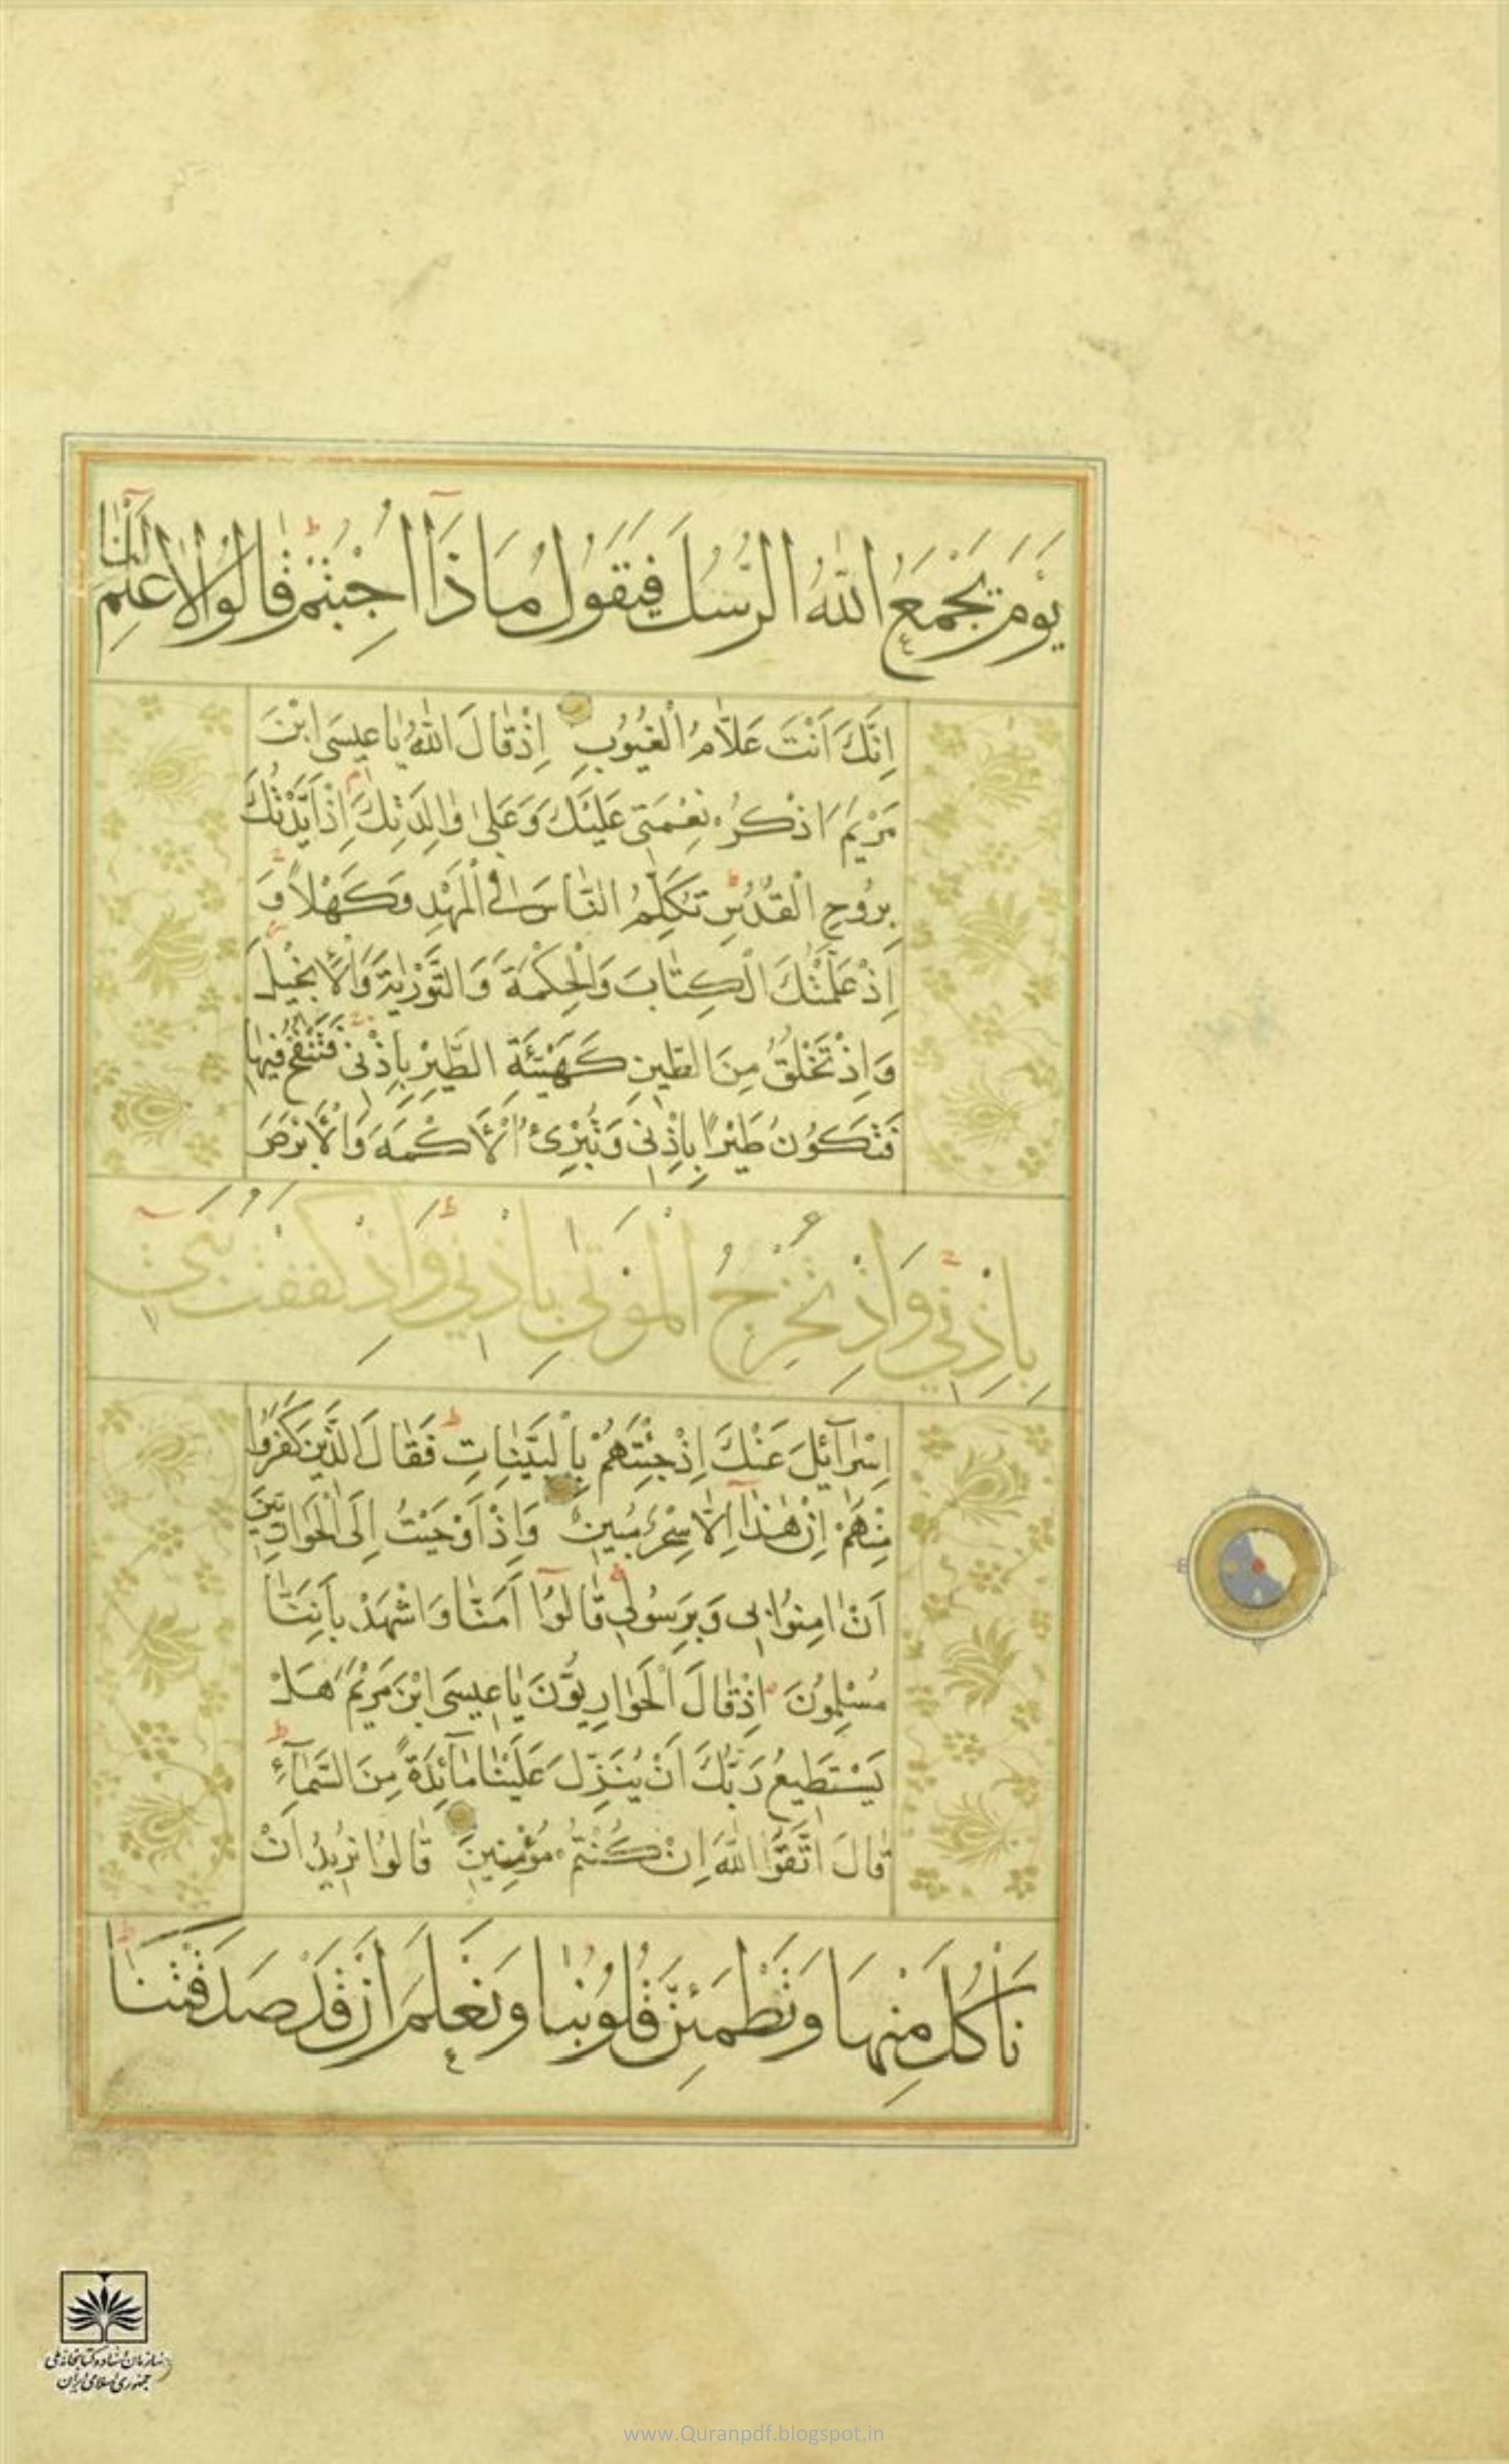 يَوْمَ يَجْمَعُ اللّٰهُ الرُّسُلَ فَيَقُولُ مَاذَآ اُجِبْتُمْ قَالُوا لَا عِلْمَ لَنَآ
اِنَّكَ اَنْتَ عَلَّامُ الْغُيُوبِ اِذْ قَالَ اللّٰهُ يَا عِيسَى ابْنَ
مَرْيَمَ اذْكُرْ نِعْمَتِي عَلَيْكَ وَعَلٰى وَالِدَتِكَ اِذْ اَيَّدْتُكَ
بِرُوحِ الْقُدُسِ تُكَلِّمُ النَّاسَ فِي الْمَهْدِ وَكَهْلًا وَ
اِذْ عَلَّمْتُكَ الْكِتَابَ وَالْحِكْمَةَ وَالتَّوْرٰيةَ وَالْاِنْجِيلَ
وَاِذْ تَخْلُقُ مِنَ الطِّينِ كَهَيْئَةِ الطَّيْرِ بِاِذْنِي فَتَنْفُخُ فِيهَا
فَتَكُونُ طَيْرًا بِاِذْنِي وَتُبْرِئُ الْاَكْمَهَ وَالْاَبْرَصَ
بِاِذْنِي وَاِذْ تُخْرِجُ الْمَوْتٰى بِاِذْنِي وَاِذْ كَفَفْتُ بَنِي
اِسْرَآئِلَ عَنْكَ اِذْ جِئْتَهُمْ بِالْبَيِّنَاتِ فَقَالَ الَّذِينَ كَفَرُوا
مِنْهُمْ اِنْ هٰذَآ اِلَّا سِحْرٌ مُبِينٌ وَاِذْ اَوْحَيْتُ اِلَى الْحَوَارِيِّينَ
اَنْ اٰمِنُوا بِي وَبِرَسُولِي قَالُوٓا اٰمَنَّا وَاشْهَدْ بِاَنَّنَا
مُسْلِمُونَ اِذْ قَالَ الْحَوَارِيُّونَ يَا عِيسَى ابْنَ مَرْيَمَ هَلْ
يَسْتَطِيعُ رَبُّكَ اَنْ يُنَزِّلَ عَلَيْنَا مَآئِدَةً مِنَ السَّمَآءِ
قَالَ اتَّقُوا اللّٰهَ اِنْ كُنْتُمْ مُؤْمِنِينَ قَالُوا نُرِيدُ اَنْ
نَأْكُلَ مِنْهَا وَتَطْمَئِنَّ قُلُوبُنَا وَنَعْلَمَ اَنْ قَدْ صَدَقْتَنَا
سازمان اسناد و کتابخانه ملی
جمهوری اسلامی ایران
www.Quranpdf.blogspot.in